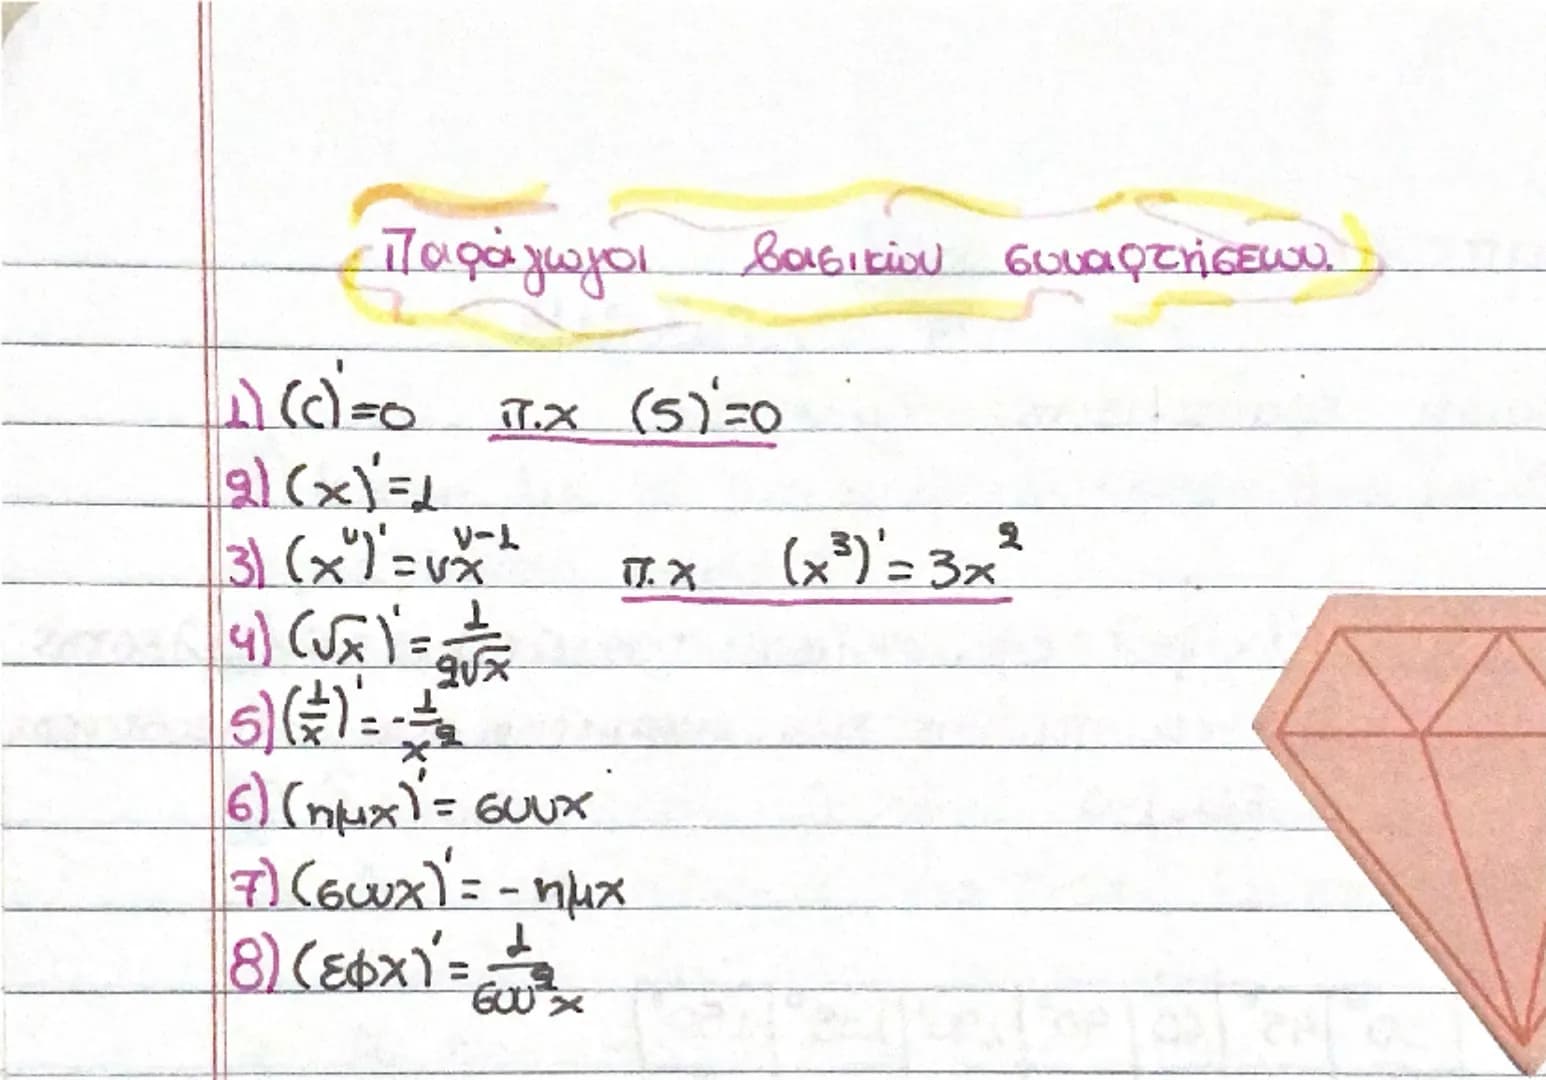 Παράγωγοι βασικών συναρτήσεων.
1) (c)'=0 π.χ (5)'=0
2) (x)'=1
3) (x^ν)'=νx^ν-1 π.χ (x^3)'=3x^2
4) (√x)'=1/2√x
5) (1/x)'=-1/x^2
6) (ημx)'= συνx
7) (συνx)'= -ημx
8) (εφx)'= 1/συν^2x